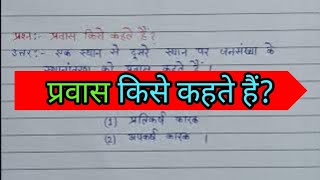 प्रश्न:- प्रवास किसे कहते हैं?
उत्तर:- एक स्थान से दूसरे स्थान पर जनसंख्या के
को प्रवास कहते हैं ।
प्रवास किसे कहते हैं?
(1) प्रतिकर्ष कारक
(2) अपकर्ष कारक ।